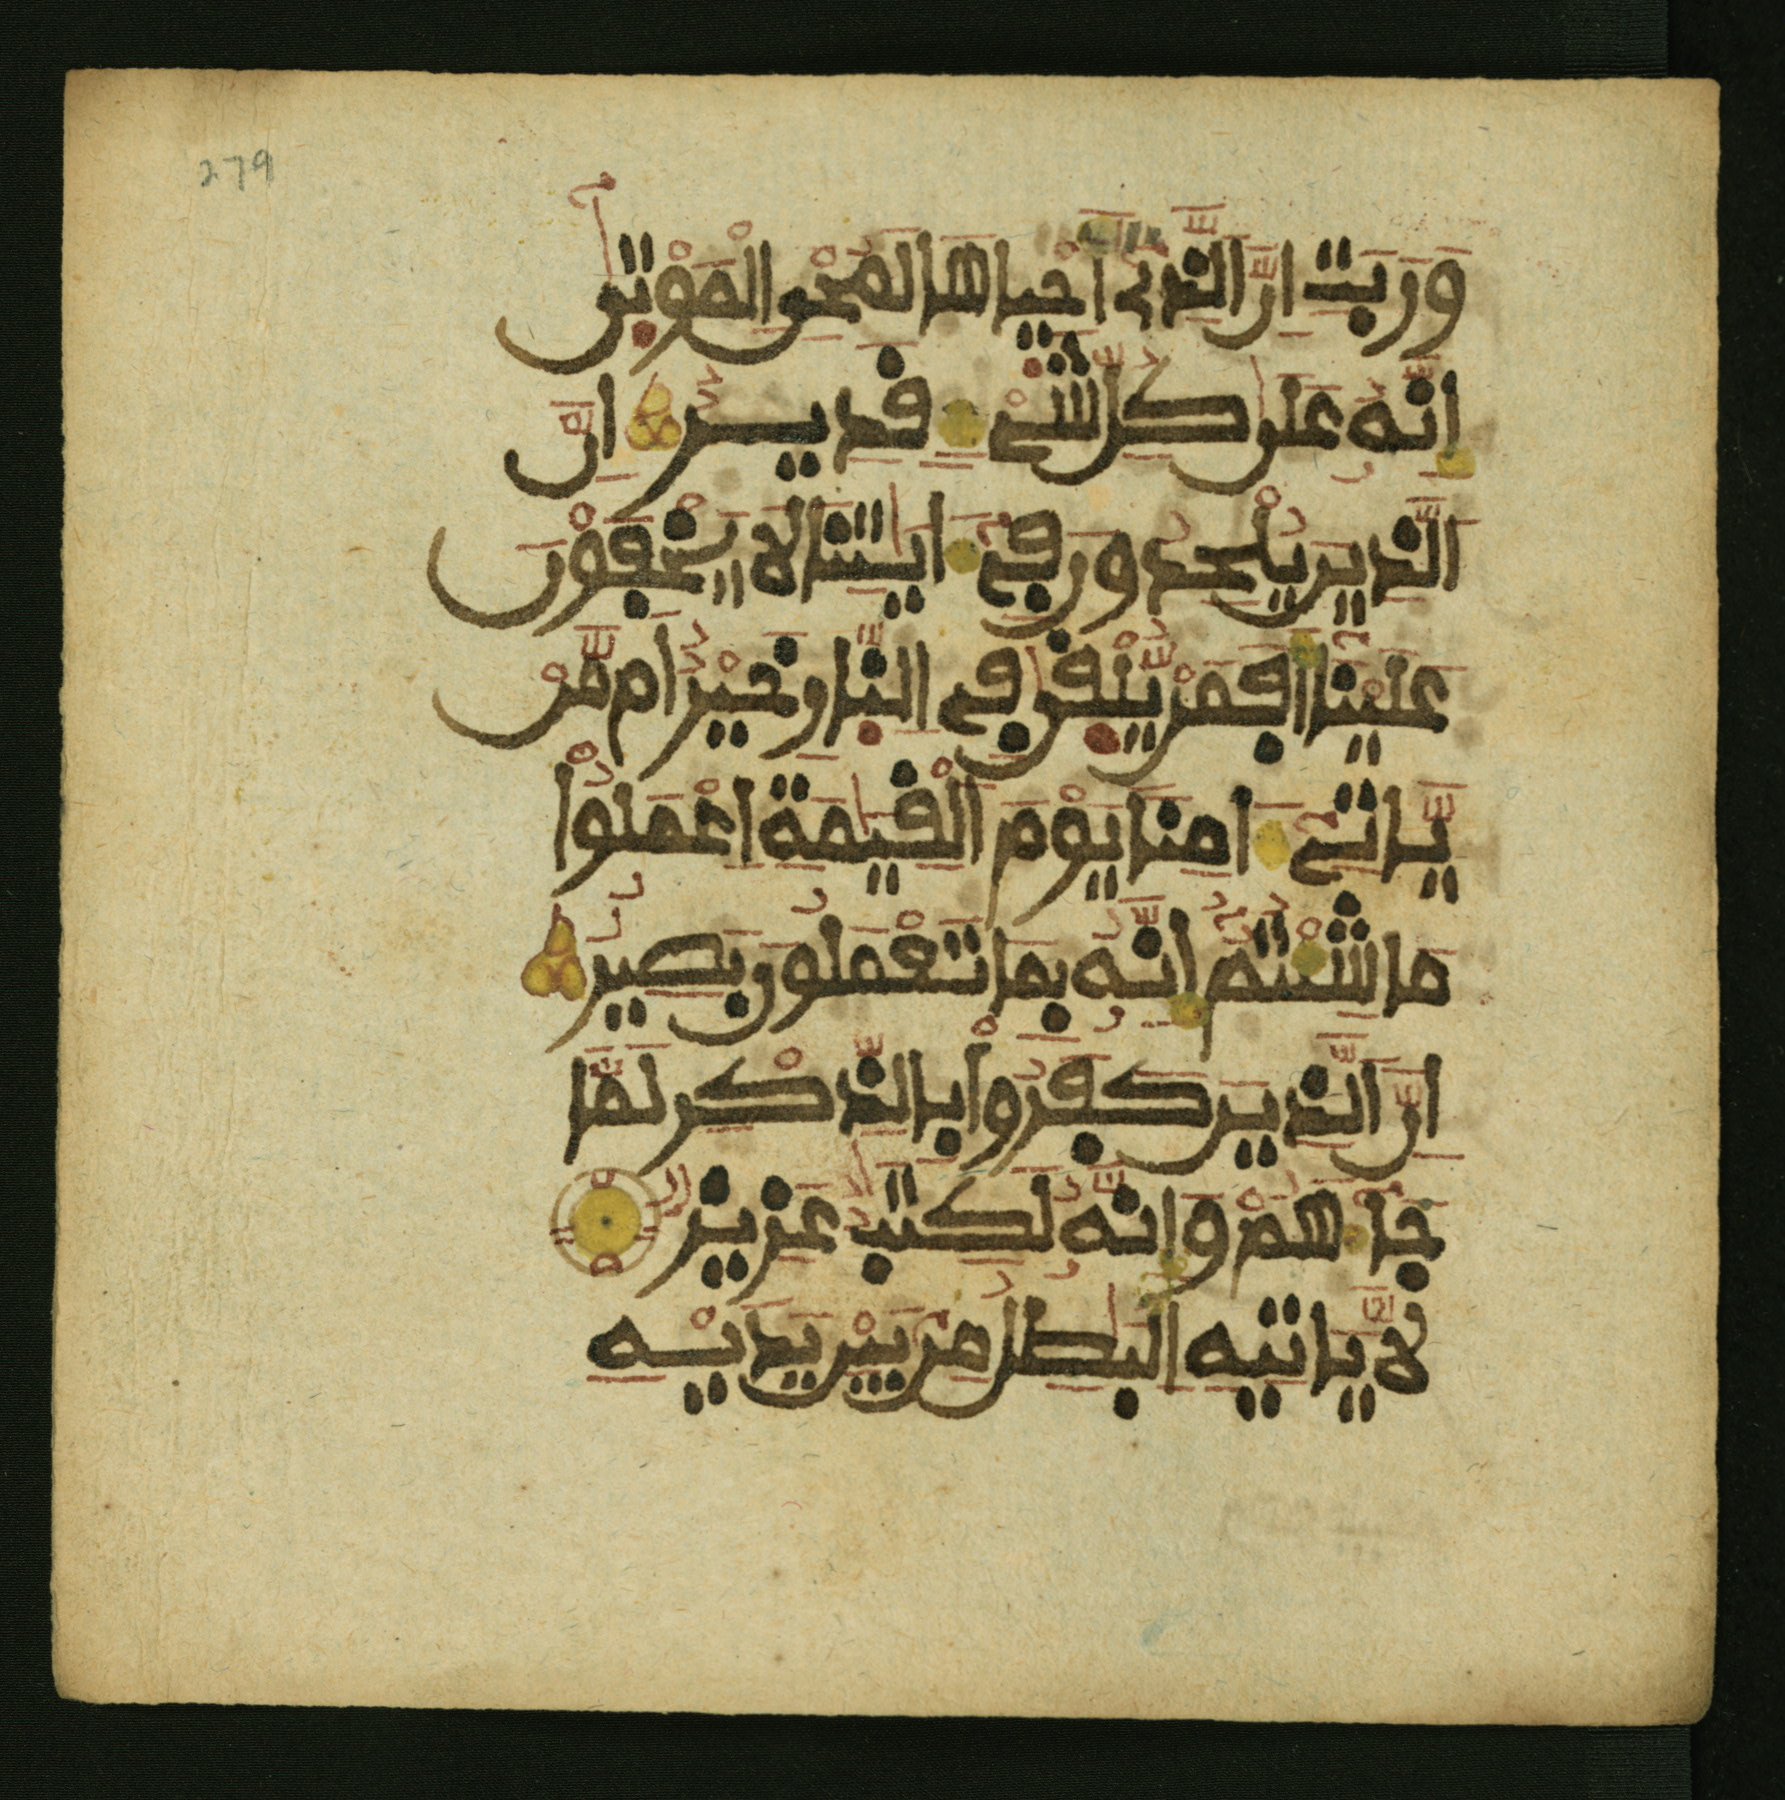 279
وربت ان الذي احياها لمحي الموتى
انه على كل شيء قدير ان
الذين يلحدون في ءايتنا لا يخفون
علينا افمن يلقى في النار خير ام من
ياتي ءامنا يوم القيمة اعملوا
ما شئتم انه بما تعملون بصير
ان الذين كفروا بالذكر لما
جاءهم وانه لكتب عزيز
لا ياتيه البطل من بين يديه